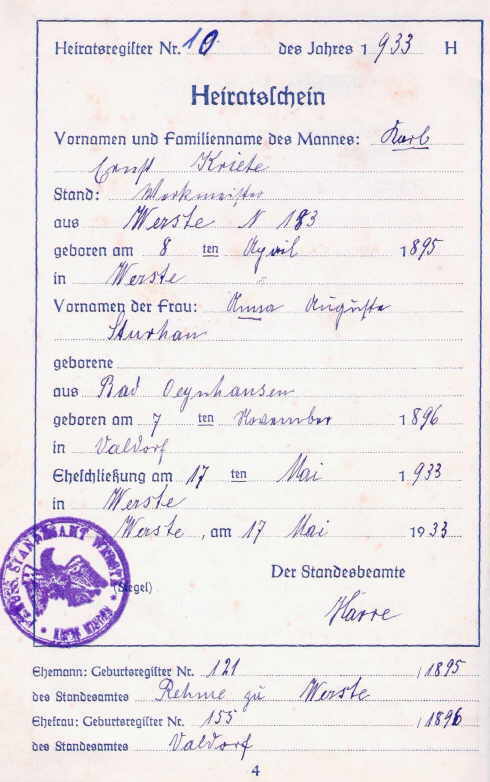 Heiratsregister Nr. 10 des Jahres 1933 H
Heiratsschein
Vornamen und Familienname des Mannes: Karl
Ernst Kriete
Stand: Werkmeister
aus Werste N 183
geboren am 8 ten April 1895
in Werste
Vornamen der Frau: Anna Auguste
Sturhan
geborene
aus Bad Oeynhausen
geboren am 7 ten November 1896
in Valdorf
Eheschließung am 17 ten Mai 1933
in Werste
Werste, am 17 Mai 1933
Der Standesbeamte
(Siegel)
STANDESAMT
Ehemann: Geburtsregister Nr. 121 / 1895
des Standesamtes Rehme zu Werste
Ehefrau: Geburtsregister Nr. 155 / 1896
des Standesamtes Valdorf
4